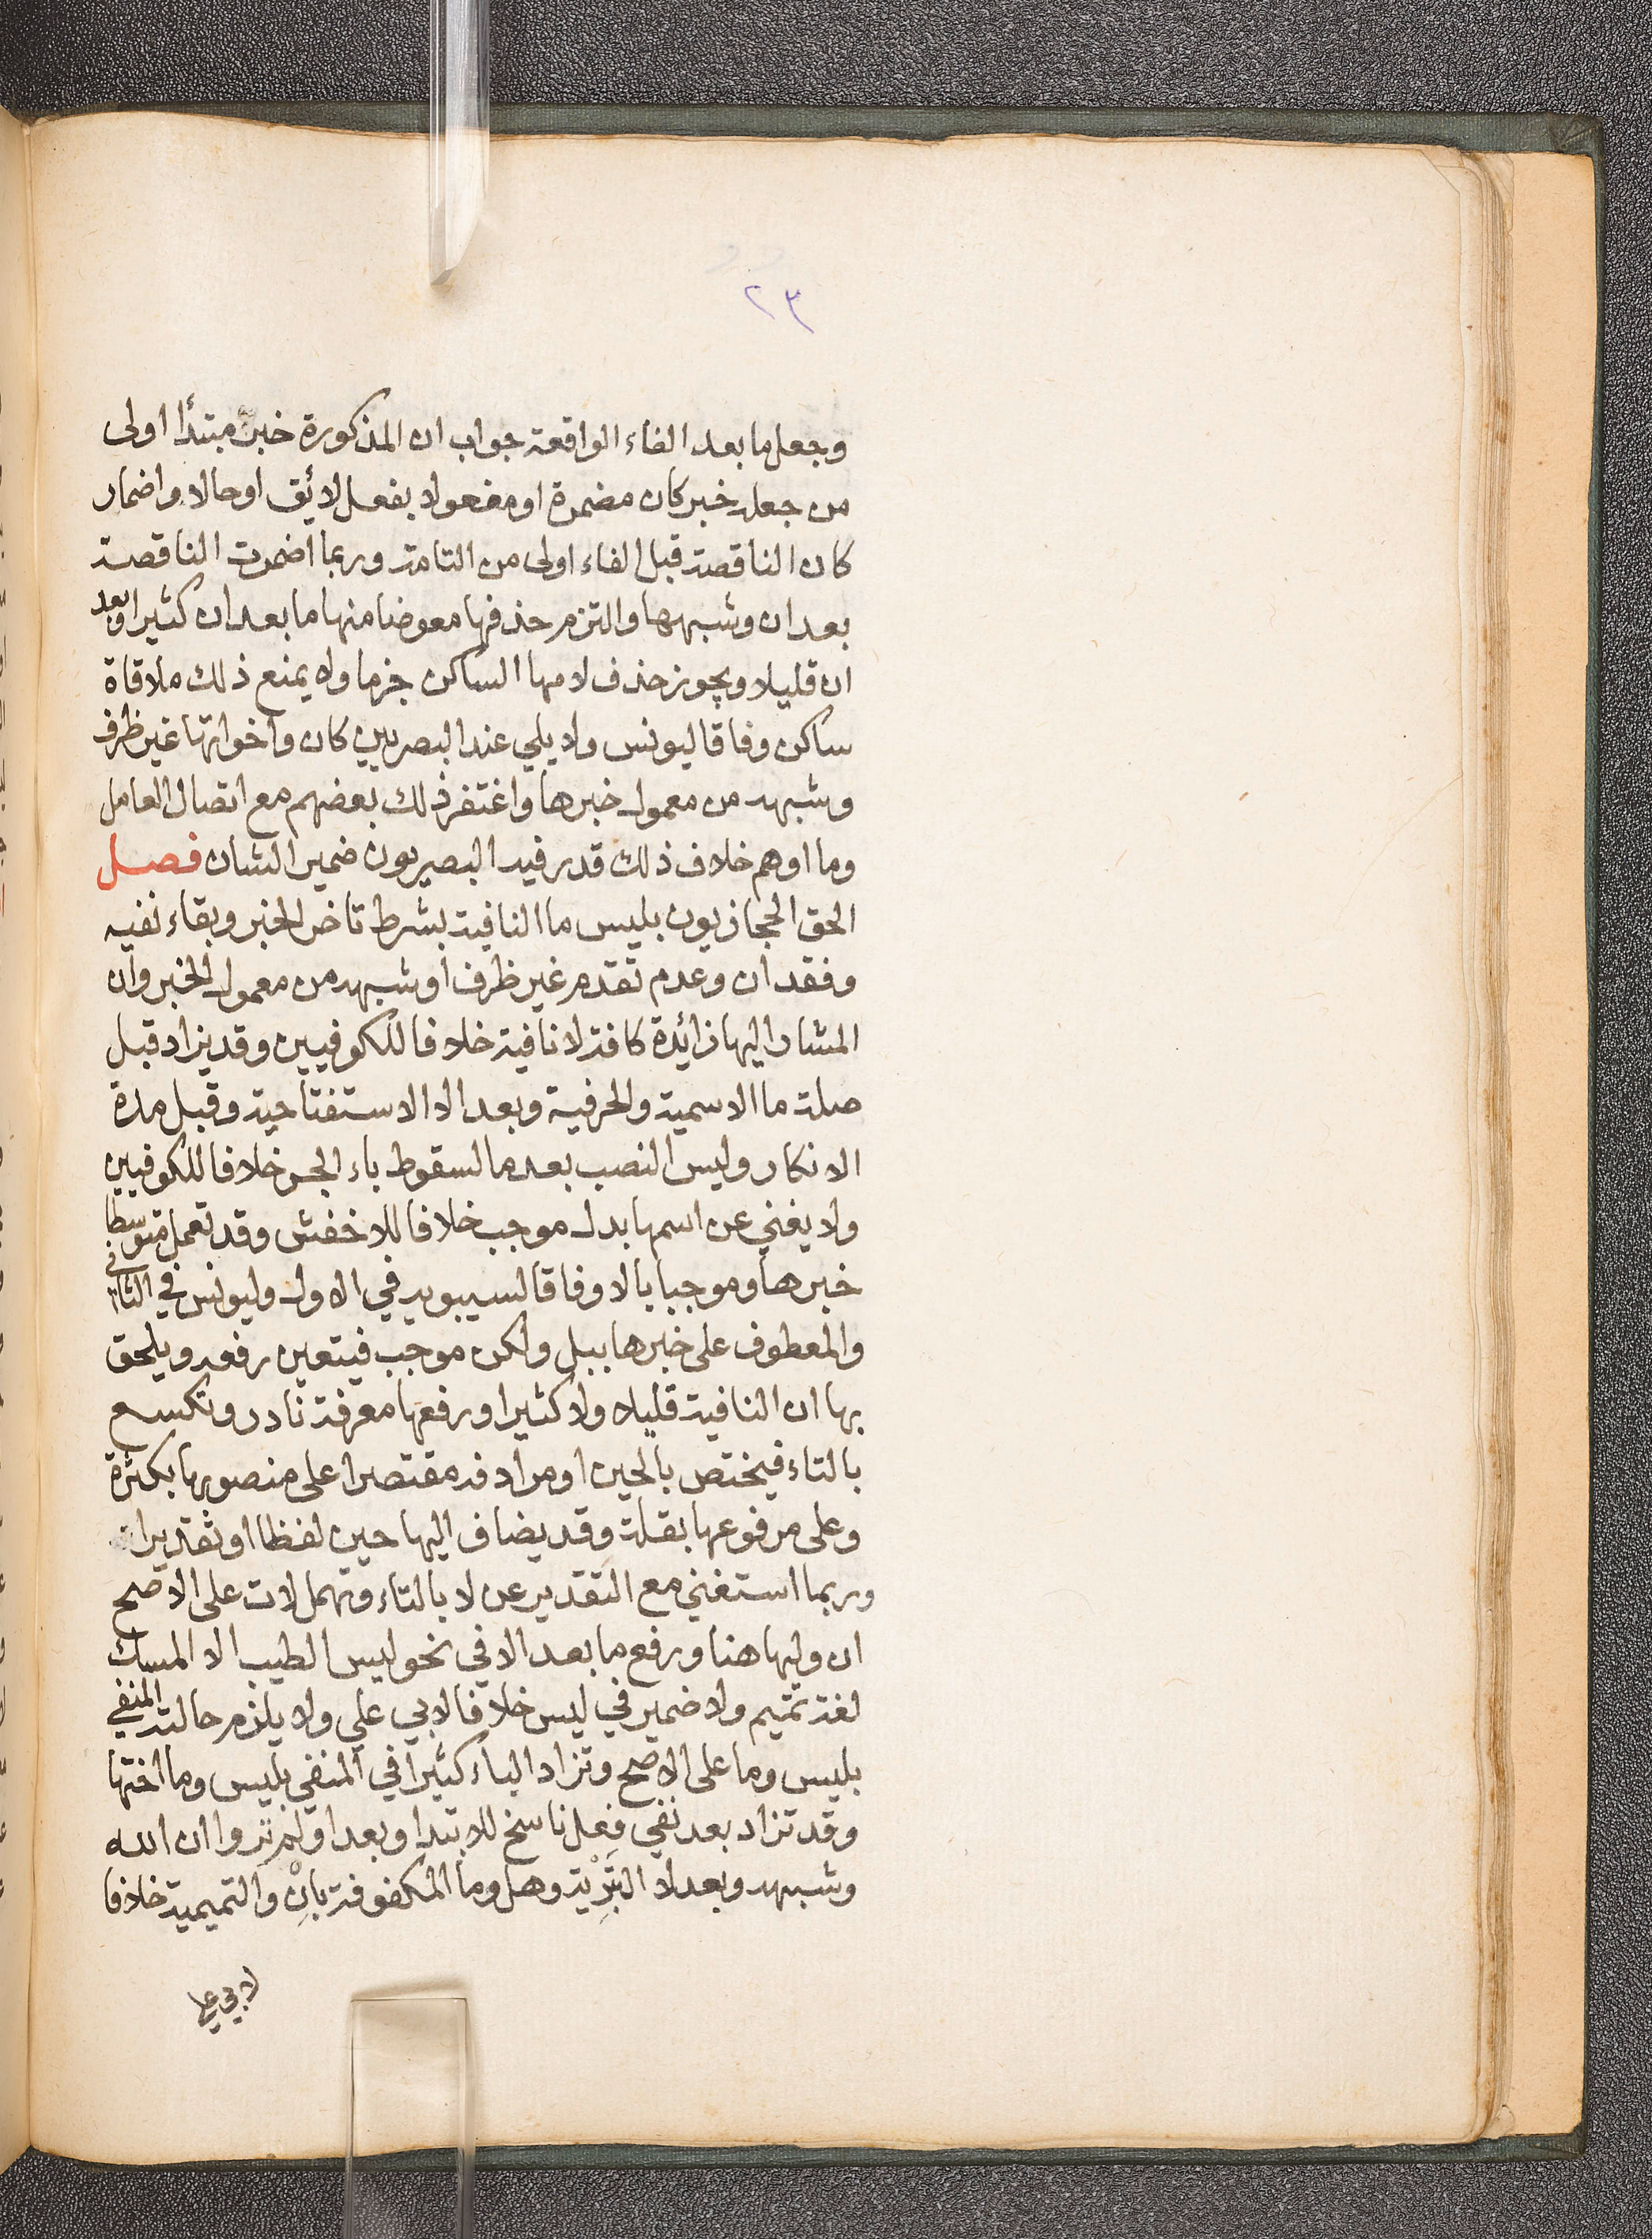 ٢٣
وجعل ما بعد الفاء الواقعة جواب ان المذكورة خبر مبتدأ اولى
من جعله خبر كان مضمرة او مفعولا بفعل لائق او حالا واضمار
كان الناقصة قبل الفاء اولى من التامة وربما اضمرت الناقصة
بعد ان وشبهها والتزم حذفها معوضا منها ما بعد ان كثيرا وبعد
ان قليلا ويجوز حذف لامها الساكن جزما ولا يمنع ذلك ملاقاة
ساكن وفاقا ليونس ولا يلي عند البصريين كان واخواتها غير ظرف
وشبهه من معمول خبرها واغتفر ذلك بعضهم مع اتصال العامل
وما اوهم خلاف ذلك قدر فيه البصريون ضمير الشان فصل
الحق الحجازيون بليس ما النافية بشرط تاخر الخبر وبقاء نفيه
وفقد ان وعدم تقدم غير ظرف أو شبهه من معمول الخبر وان
المشار اليها زائدة كافة لا نافية خلافا للكوفيين وقد يزاد قبل
صلة ما الاسمية والحرفية وبعد الا الاستفتاحية وقبل مدة
الانكار وليس النصب بعد ما لسقوط باء الجر خلافا للكوفيين
ولا يغني عن اسمها بدل موجب خلافا للاخفش وقد تعمل متوسطا
خبرها وموجبا بالا وفاقا لسيبويه في الاول وليونس في الثاني
والمعطوف على خبرها ببل ولكن موجب فيتعين رفعه ويلحق
بها ان النافية قليلا ولا كثيرا ورفعها معرفة نادر وتكسع
بالتاء فيختص بالحين او مرادفه مقتصرا على منصوبها بكثرة
وعلى مرفوعها بقلة وقد يضاف اليها حين لفظا او تقديرا
وربما استغني مع التقدير عن لا بالتاء وتهمل لات على الاصح
ان وليها هنا ورفع ما بعد الا في نحو ليس الطيب الا المسك
لغة تميم ولا ضمير في ليس خلافا لابي علي ولا يلزم حالته المنفي
بليس وما على الاصح وتزاد الباء كثيرا في المنفي بليس وما اختها
وقد تزاد بعد نفي فعل ناسخ للابتدا وبعد اولم تروا ان الله
وشبهه وبعد لا التبرئة وهل وما المكفوفة بانْ والتميمية خلافا
لابي علي